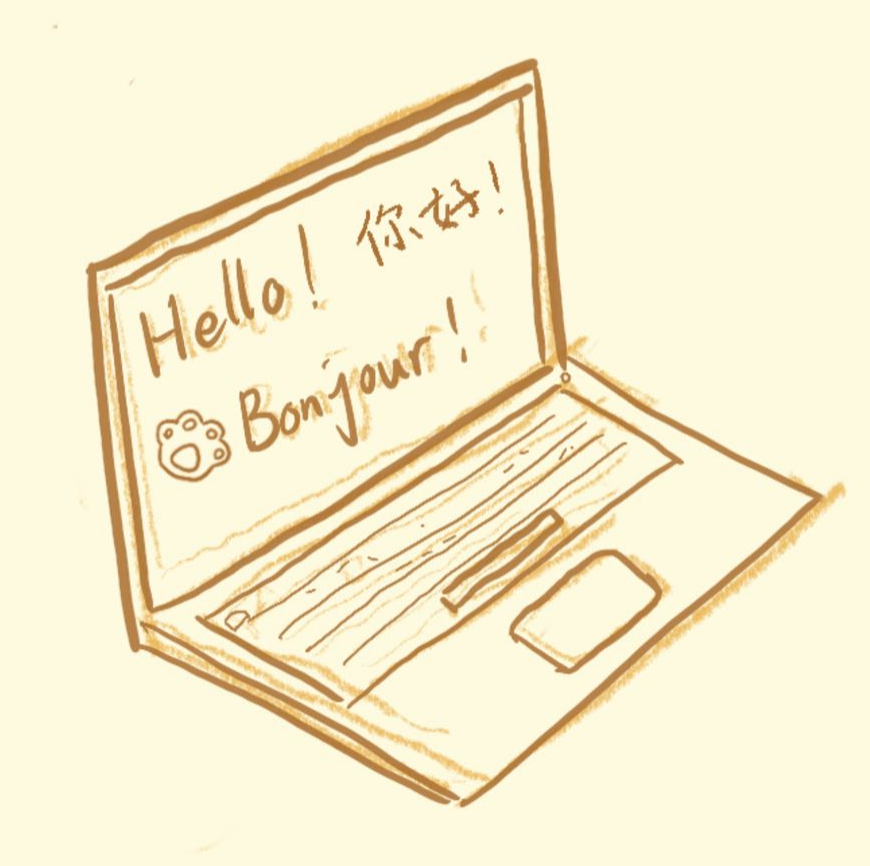 Hello! 你好!
Bonjour!